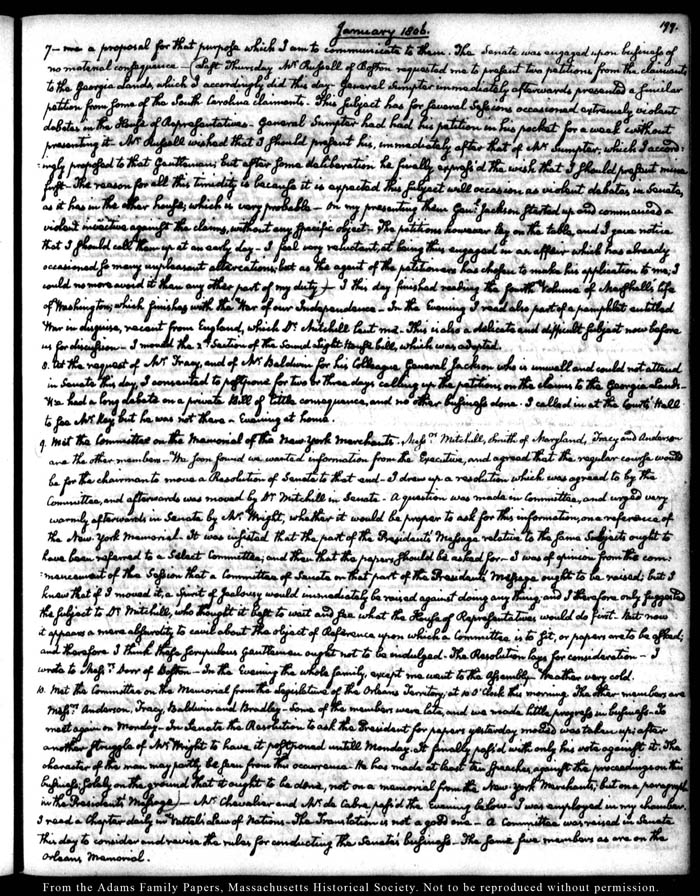 January 1806.
199.
7— me a proposal for that purpose which I am to communicate to them. The Senate was engaged upon business of
no material consequence. (Last Thursday Mr. Russell of Boston requested me to present two petitions from the claimants
to the Georgia Lands, which I accordingly did this day. General Sumpter immediately afterwards presented a similar
petition from some of the South Carolina claimants. This subject has for several Sessions occasioned extremely violent
debates in the House of Representatives — General Sumpter had had his petition in his pocket for a week without
presenting it. Mr. Russell wished that I should present his, immediately after that of Mr. Sumpter, which I accord:
:ingly proposed to that Gentleman; but after some deliberation he finally express'd the wish that I should present mine
first. The reason for all this timidity is because it is expected this subject will occasion as violent debates in Senate,
as it has in the other house; which is very probable — On my presenting them Genl. Jackson started up and commenced a
violent invective against the claims, without any specific object — The petitions however lay on the table, and I gave notice
that I should call them up at an early day — I feel very reluctant at being thus engaged in an affair which has already
occasioned so many unpleasant altercations; but as the agent of the petitioners has chosen to make his application to me, I
could no more avoid it than any other part of my duty) — I this day finished reading the fourth Volume of Marshall's Life
of Washington; which finishes with the War of our Independence — In the Evening I read also part of a pamphlet entitled
War in disguise, recent from England, which Dr. Mitchill lent me — This is also a delicate and difficult subject now before
us for discussion — I moved the 3d. Section of the Sound Light House bill, which was adopted.
8. At the request of Mr. Tracy, and of Mr. Baldwin for his Colleague General Jackson who is unwell and could not attend
in Senate this day, I consented to postpone for two or three days calling up the petitions, on the claims to the Georgia Lands —
We had a long debate on a private Bill of little consequence, and no other business done. I called in at the Court Hall
to see Mr. Key but he was not there — Evening at home.
9. Met the Committee on the Memorial of the New York merchants. Messrs. Mitchill, Smith of Maryland, Tracy and Anderson
are the other members — We soon found we wanted information from the Executive, and agreed that the regular course would
be for the chairman to move a Resolution of Senate to that end — I drew up a resolution which was agreed to by the
Committee, and afterwards was moved by Dr. Mitchill in Senate — A question was made in Committee, and urged very
warmly afterwards in Senate by Mr. Wright, whether it would be proper to ask for this information, on a reference of
the New York Memorial. It was insisted that the part of the President's Message relative to the same Subjects ought to
have been referred to a Select Committee; and then that the papers should be asked for — I was of opinion from the com:
:mencement of the Session that a Committee of Senate on that part of the President's Message ought to be raised; but I
knew that if I moved it, a spirit of Jealousy would immediately be raised against doing any thing; and I therefore only suggested
the subject to Dr. Mitchill, who thought it best to wait and see what the House of Representatives would do first. But now
it appears a mere absurdity to cavil about the object of Reference upon which a Committee is to sit, or papers are to be asked;
and therefore I think these scrupulous Gentlemen ought not to be indulged — The Resolution lays for consideration — I
wrote to Messrs. Dorr of Boston — In the Evening the whole family, except me went to the Assembly. Weather very cold.
10. Met the Committee on the Memorial from the Legislature of the Orleans Territory, at 10 O'Clock this morning. The other members are
Messrs. Anderson, Tracy, Baldwin and Bradley — Some of the members were late, and we made little progress in business — To
meet again on Monday — In Senate the Resolution to ask the President for papers yesterday moved was taken up; after
another struggle of Mr. Wright to have it postponed untill Monday. It finally pass'd with only his vote against it. The
character of the man may partly be seen from this occurrence. He has made at least six speeches against the proceedings on this
business; solely on the ground that it ought to be done, not on a memorial from the New York Merchants, but on a paragraph
in the President's Message) — Mr. Chevalier and Mr. de Cabre pass'd the Evening below — I was employed in my chamber.
I read a Chapter daily in Vattel's Law of Nations — The Translation is not a good one — A Committee was raised in Senate
this day to consider and revise the rules for conducting the Senate's business — The same five members as are on the
Orleans Memorial.
From the Adams Family Papers, Massachusetts Historical Society. Not to be reproduced without permission.